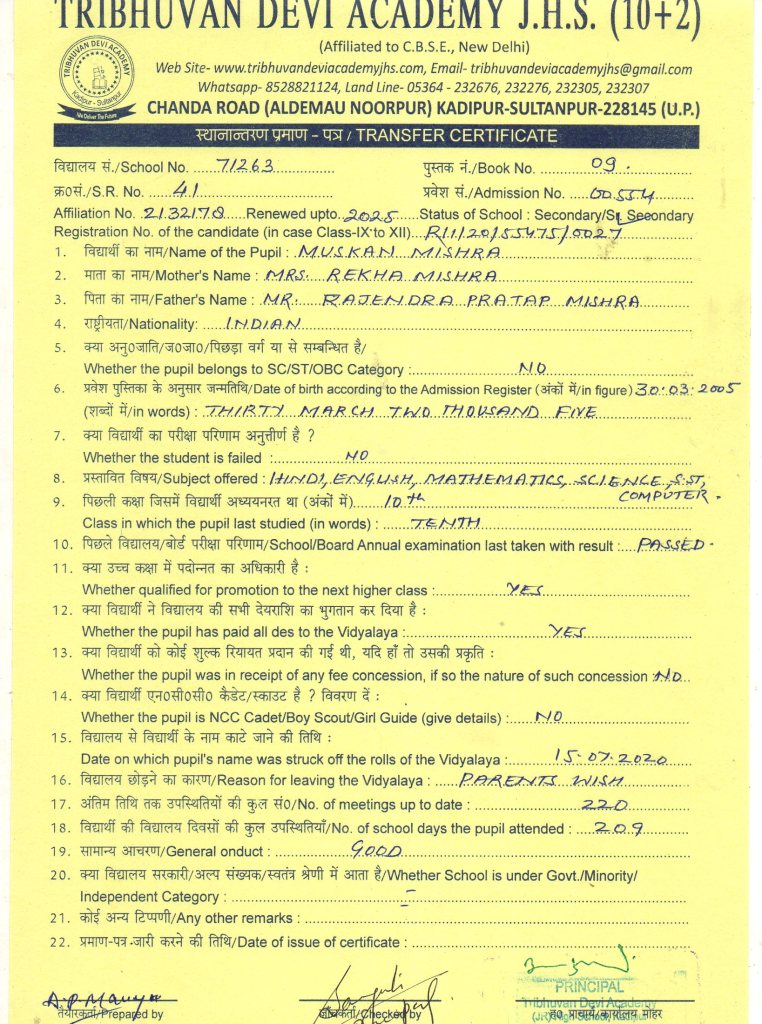 TRIBHUVAN DEVI ACADEMY J.H.S. (10+2)
(Affiliated to C.B.S.E., New Delhi)
TRIBHUVAN DEVI ACADEMY
Kadipur - Sultanpur
We Deliver The Future
Web Site- www.tribhuvandeviacademyjhs.com, Email- tribhuvandeviacademyjhs@gmail.com
Whatsapp- 8528821124, Land Line- 05364 - 232676, 232276, 232305, 232307
CHANDA ROAD (ALDEMAU NOORPUR) KADIPUR-SULTANPUR-228145 (U.P.)
स्थानान्तरण प्रमाण - पत्र / TRANSFER CERTIFICATE
विद्यालय सं./School No. 71263 पुस्तक नं./Book No. 09.
क्र०सं./S.R. No. 41 प्रवेश सं./Admission No. 00554
Affiliation No. 2132178 Renewed upto 2025 Status of School : Secondary/Sr. Secondary
Registration No. of the candidate (in case Class-IX to XII) R/11/20/55475/0027
1. विद्यार्थी का नाम/Name of the Pupil : MUSKAN MISHRA
2. माता का नाम/Mother's Name : MRS. REKHA MISHRA
3. पिता का नाम/Father's Name : MR. RAJENDRA PRATAP MISHRA
4. राष्ट्रीयता/Nationality: INDIAN
5. क्या अनु०जाति/ज०जा०/पिछड़ा वर्ग या से सम्बन्धित है/
Whether the pupil belongs to SC/ST/OBC Category : NO
6. प्रवेश पुस्तिका के अनुसार जन्मतिथि/Date of birth according to the Admission Register (अंकों में/in figure) 30.03.2005
(शब्दों में/in words) : THIRTY MARCH TWO THOUSAND FIVE
7. क्या विद्यार्थी का परीक्षा परिणाम अनुत्तीर्ण है ?
Whether the student is failed : NO
8. प्रस्तावित विषय/Subject offered : HINDI, ENGLISH, MATHEMATICS, SCIENCE, S.ST,
COMPUTER.
9. पिछली कक्षा जिसमें विद्यार्थी अध्ययनरत था (अंकों में) 10th
Class in which the pupil last studied (in words) : TENTH
10. पिछले विद्यालय/बोर्ड परीक्षा परिणाम/School/Board Annual examination last taken with result : PASSED.
11. क्या उच्च कक्षा में पदोन्नत का अधिकारी है :
Whether qualified for promotion to the next higher class : YES
12. क्या विद्यार्थी ने विद्यालय की सभी देयराशि का भुगतान कर दिया है :
Whether the pupil has paid all des to the Vidyalaya : YES
13. क्या विद्यार्थी को कोई शुल्क रियायत प्रदान की गई थी, यदि हाँ तो उसकी प्रकृति :
Whether the pupil was in receipt of any fee concession, if so the nature of such concession : NO
14. क्या विद्यार्थी एन०सी०सी० कैडेट/स्काउट है ? विवरण दें :
Whether the pupil is NCC Cadet/Boy Scout/Girl Guide (give details) : NO
15. विद्यालय से विद्यार्थी के नाम काटे जाने की तिथि :
Date on which pupil's name was struck off the rolls of the Vidyalaya : 15.07.2020
16. विद्यालय छोड़ने का कारण/Reason for leaving the Vidyalaya : PARENTS WISH
17. अंतिम तिथि तक उपस्थितियों की कुल सं०/No. of meetings up to date : 220
18. विद्यार्थी की विद्यालय दिवसों की कुल उपस्थितियाँ/No. of school days the pupil attended : 209
19. सामान्य आचरण/General onduct : GOOD
20. क्या विद्यालय सरकारी/अल्प संख्यक/स्वतंत्र श्रेणी में आता है/Whether School is under Govt./Minority/
Independent Category : -
21. कोई अन्य टिप्पणी/Any other remarks :
22. प्रमाण-पत्र जारी करने की तिथि/Date of issue of certificate :
A.P. Maurya
तैयारकर्ता/Prepared by जाँचकर्ता/Checked by ह० प्राचार्य/कार्यालय मोहर
PRINCIPAL
Tribhuvan Devi Academy
(Jr) High School, Kadipur